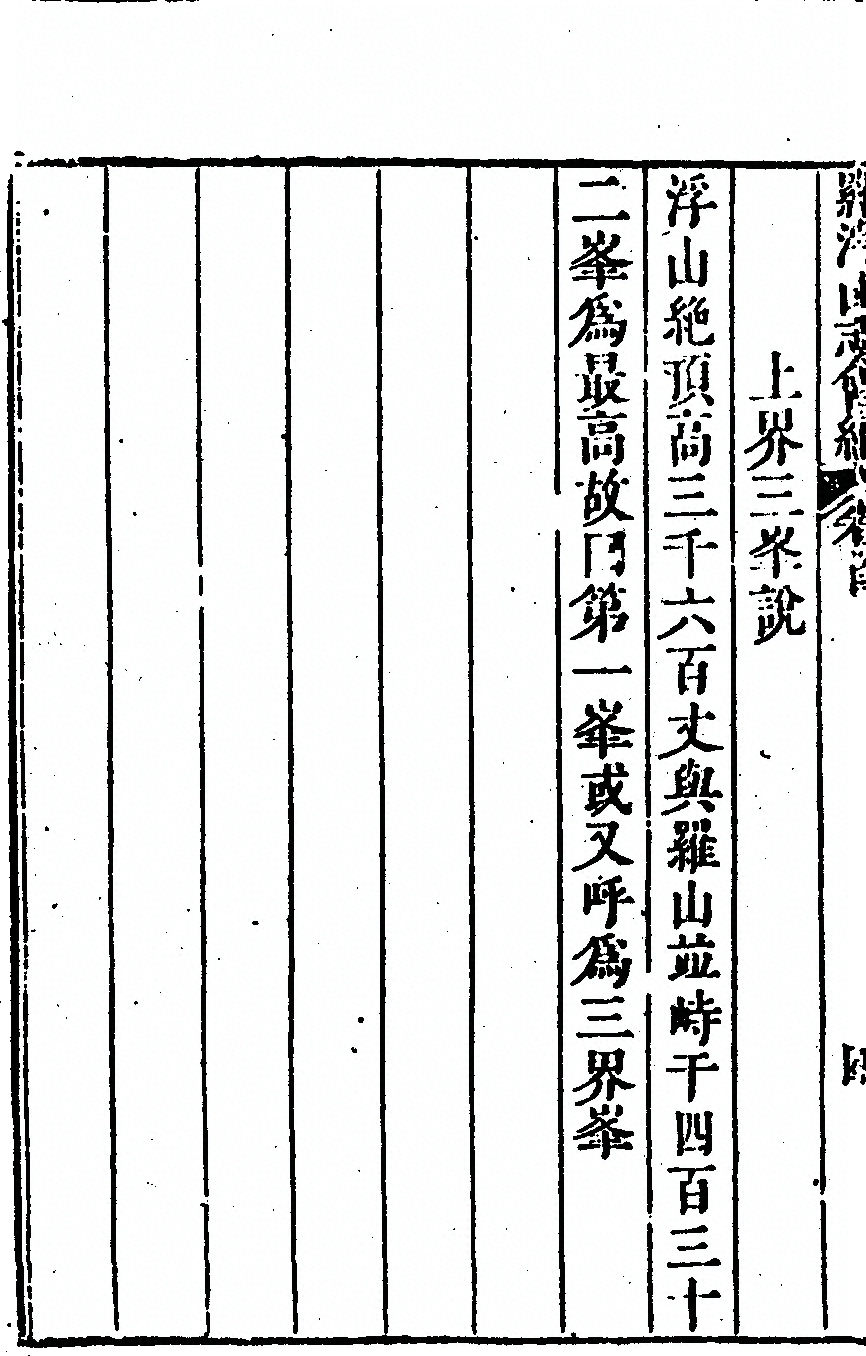 羅浮山志會編 卷首 四
上界三峯說
浮山絶頂高三千六百丈與羅山並峙于四百三十
二峯爲最高故第一峯或又呼爲三界峯